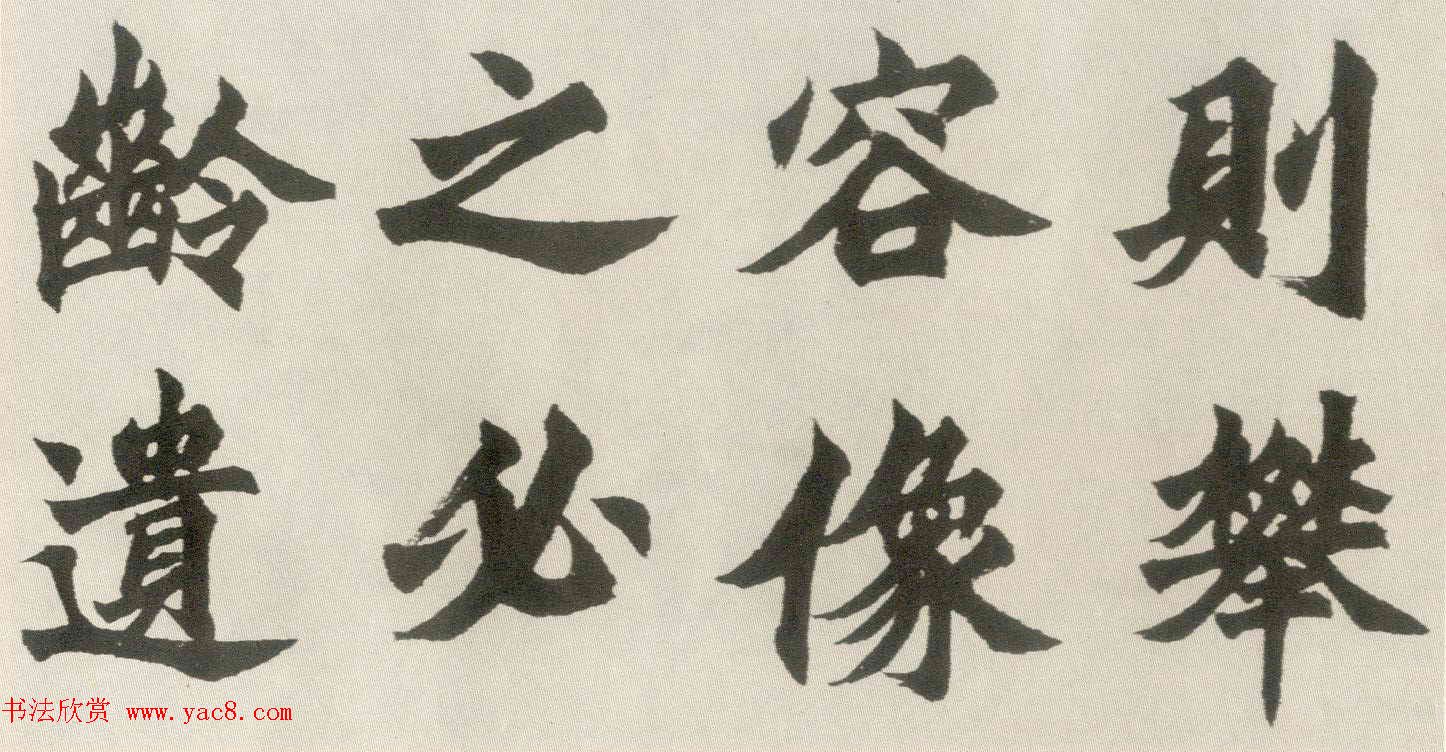 則攀
容像
之必
齡遺
书法欣赏 www.yac8.com